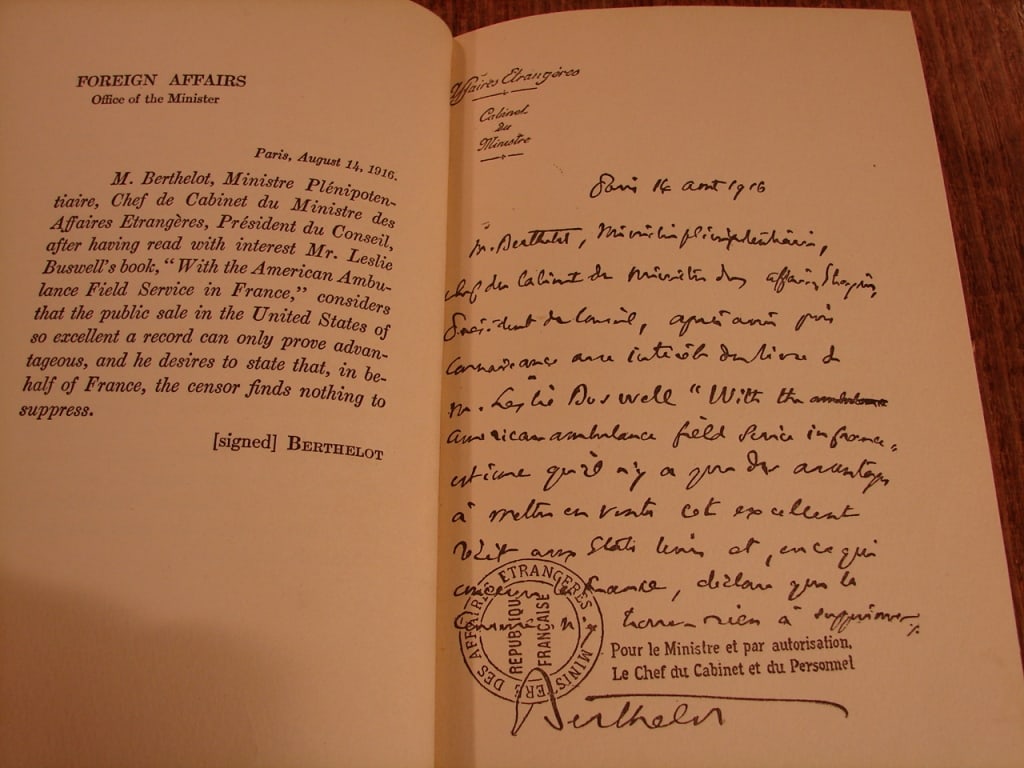 FOREIGN AFFAIRS
Office of the Minister
Paris, August 14, 1916.
M. Berthelot, Ministre Plénipoten-
tiaire, Chef de Cabinet du Ministre des
Affaires Etrangères, Président du Conseil,
after having read with interest Mr. Leslie
Buswell's book, "With the American Ambu-
lance Field Service in France," considers
that the public sale in the United States of
so excellent a record can only prove advan-
tageous, and he desires to state that, in be-
half of France, the censor finds nothing to
suppress.
[signed] BERTHELOT
Affaires Etrangères
Cabinet
du
Ministre
Paris 14 août 1916
M. Berthelot, Ministre plénipotentiaire,
chef du Cabinet du Ministre des affaires Etrangères,
Président du Conseil, après avoir pris
connaissance avec intérêt du livre de
M. Leslie Buswell "With the
american ambulance field service in france"
estime qu'il n'y a que des avantages
à mettre en vente cet excellent
récit aux Etats Unis et, en ce qui
concerne la France, déclare que la
trouve rien à supprimer
MINISTÈRE DES AFFAIRES ETRANGÈRES
REPUBLIQUE
FRANÇAISE
Pour le Ministre et par autorisation,
Le Chef du Cabinet et du Personnel
Berthelot